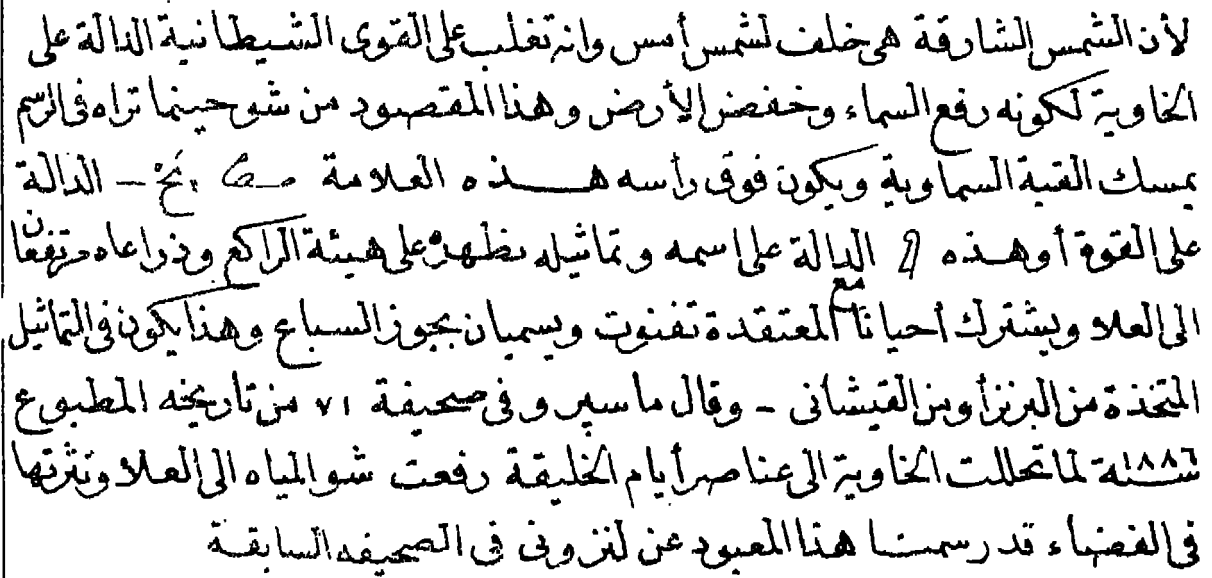 لأن الشمس الشارقة هى خلف لشمس أمس وانه تغلب على القوى الشيطانية الدالة على
الخاوية لكونه رفع السماء وخفض الأرض وهذا المقصود من شو حينما تراه فى الرسم
يمسك القبة السماوية ويكون فوق رأسه هذه العلامة – الدالة
على القوة أو هذه الدالة على اسمه وتماثيله تظهره على هيئة الراكع وذراعاه مرتفعان
الى العلا ويشترك أحيانا مع المعتقدة تفنوت ويسميان بجوز السباع وهذا يكون فى التماثيل
المتخذة من البرنز أو من القيشانى – وقال ماسپرو فى صحيفة ٧١ من تاريخه المطبوع
سنة ١٨٨٦ لما تحللت الخاوية الى عناصر أيام الخليقة رفعت شو المياه الى العلا ونثرتها
فى الفضاء قد رسمنا هذا المعبود عن لنزونى فى الصحيفه السابقة